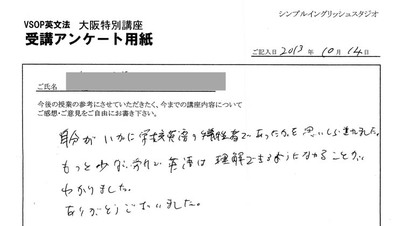 シンプルイングリッシュスタジオ
VSOP英文法 大阪特別講座
受講アンケート用紙
ご記入日 2013年 10月 14日
ご氏名
今後の授業の参考にさせていただきたく、今までの講座内容について
ご感想・ご意見をご自由にお書き下さい。
自分がいかに学校英語の犠牲者であったかを思いしらされました。
もっと少ない労力で英語は理解できるようになることが
わかりました。
ありがとうございました。